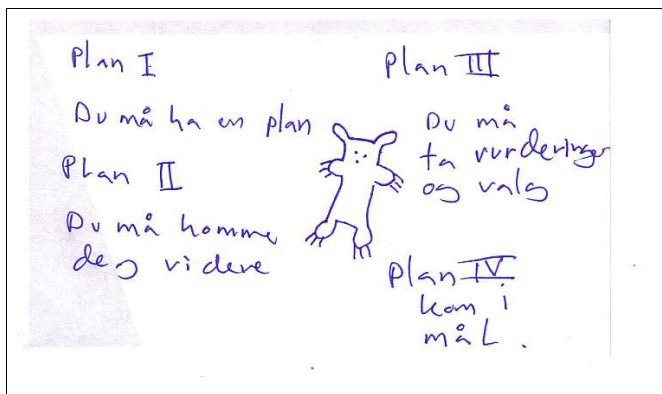 Plan I
Du må ha en plan
Plan II
Du må komme
deg videre
Plan III
Du må
ta vurderinger
og valg
Plan IV
kom i
mål.